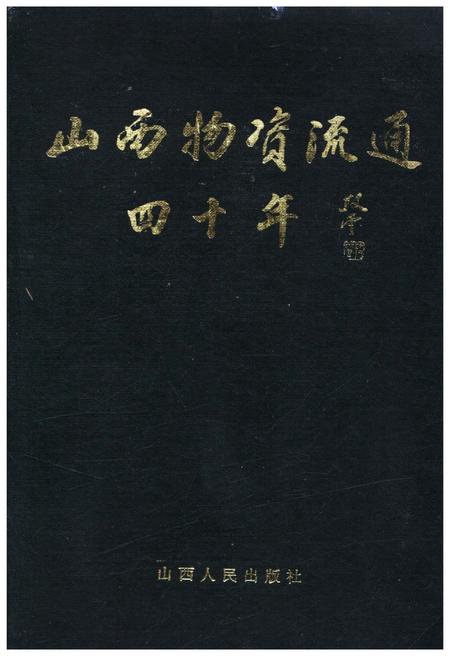 山西物资流通
四十年
山西人民出版社